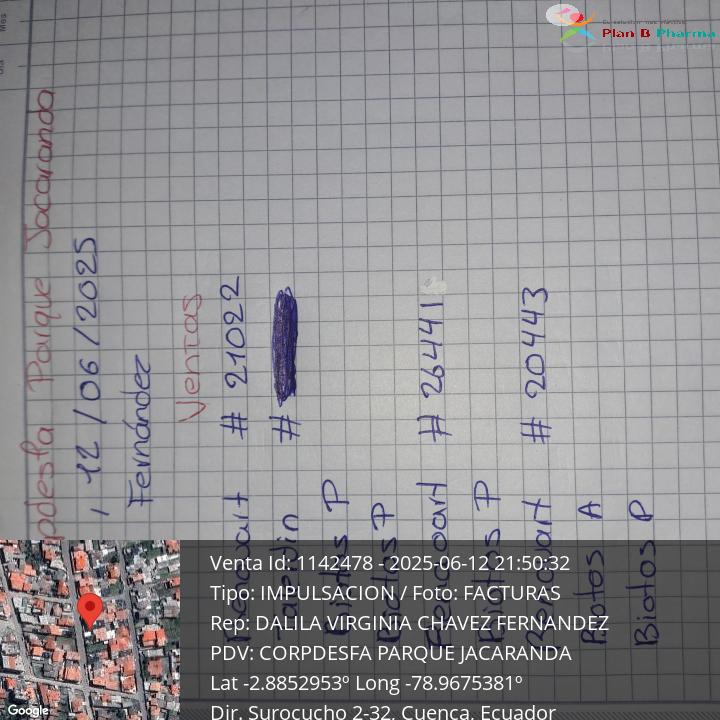 Plan B Pharma
podesfa Parque Jacaranda
, 12/06/2025
Fernández
Ventas
# 21022
#
Biotos P
Biotos P
# 26441
Biotos P
# 20443
Biotos A
Biotos P
Venta Id: 1142478 - 2025-06-12 21:50:32
Tipo: IMPULSACION / Foto: FACTURAS
Rep: DALILA VIRGINIA CHAVEZ FERNANDEZ
PDV: CORPDESFA PARQUE JACARANDA
Lat -2.8852953º Long -78.9675381º
Dir. Surocucho 2-32, Cuenca, Ecuador
Google